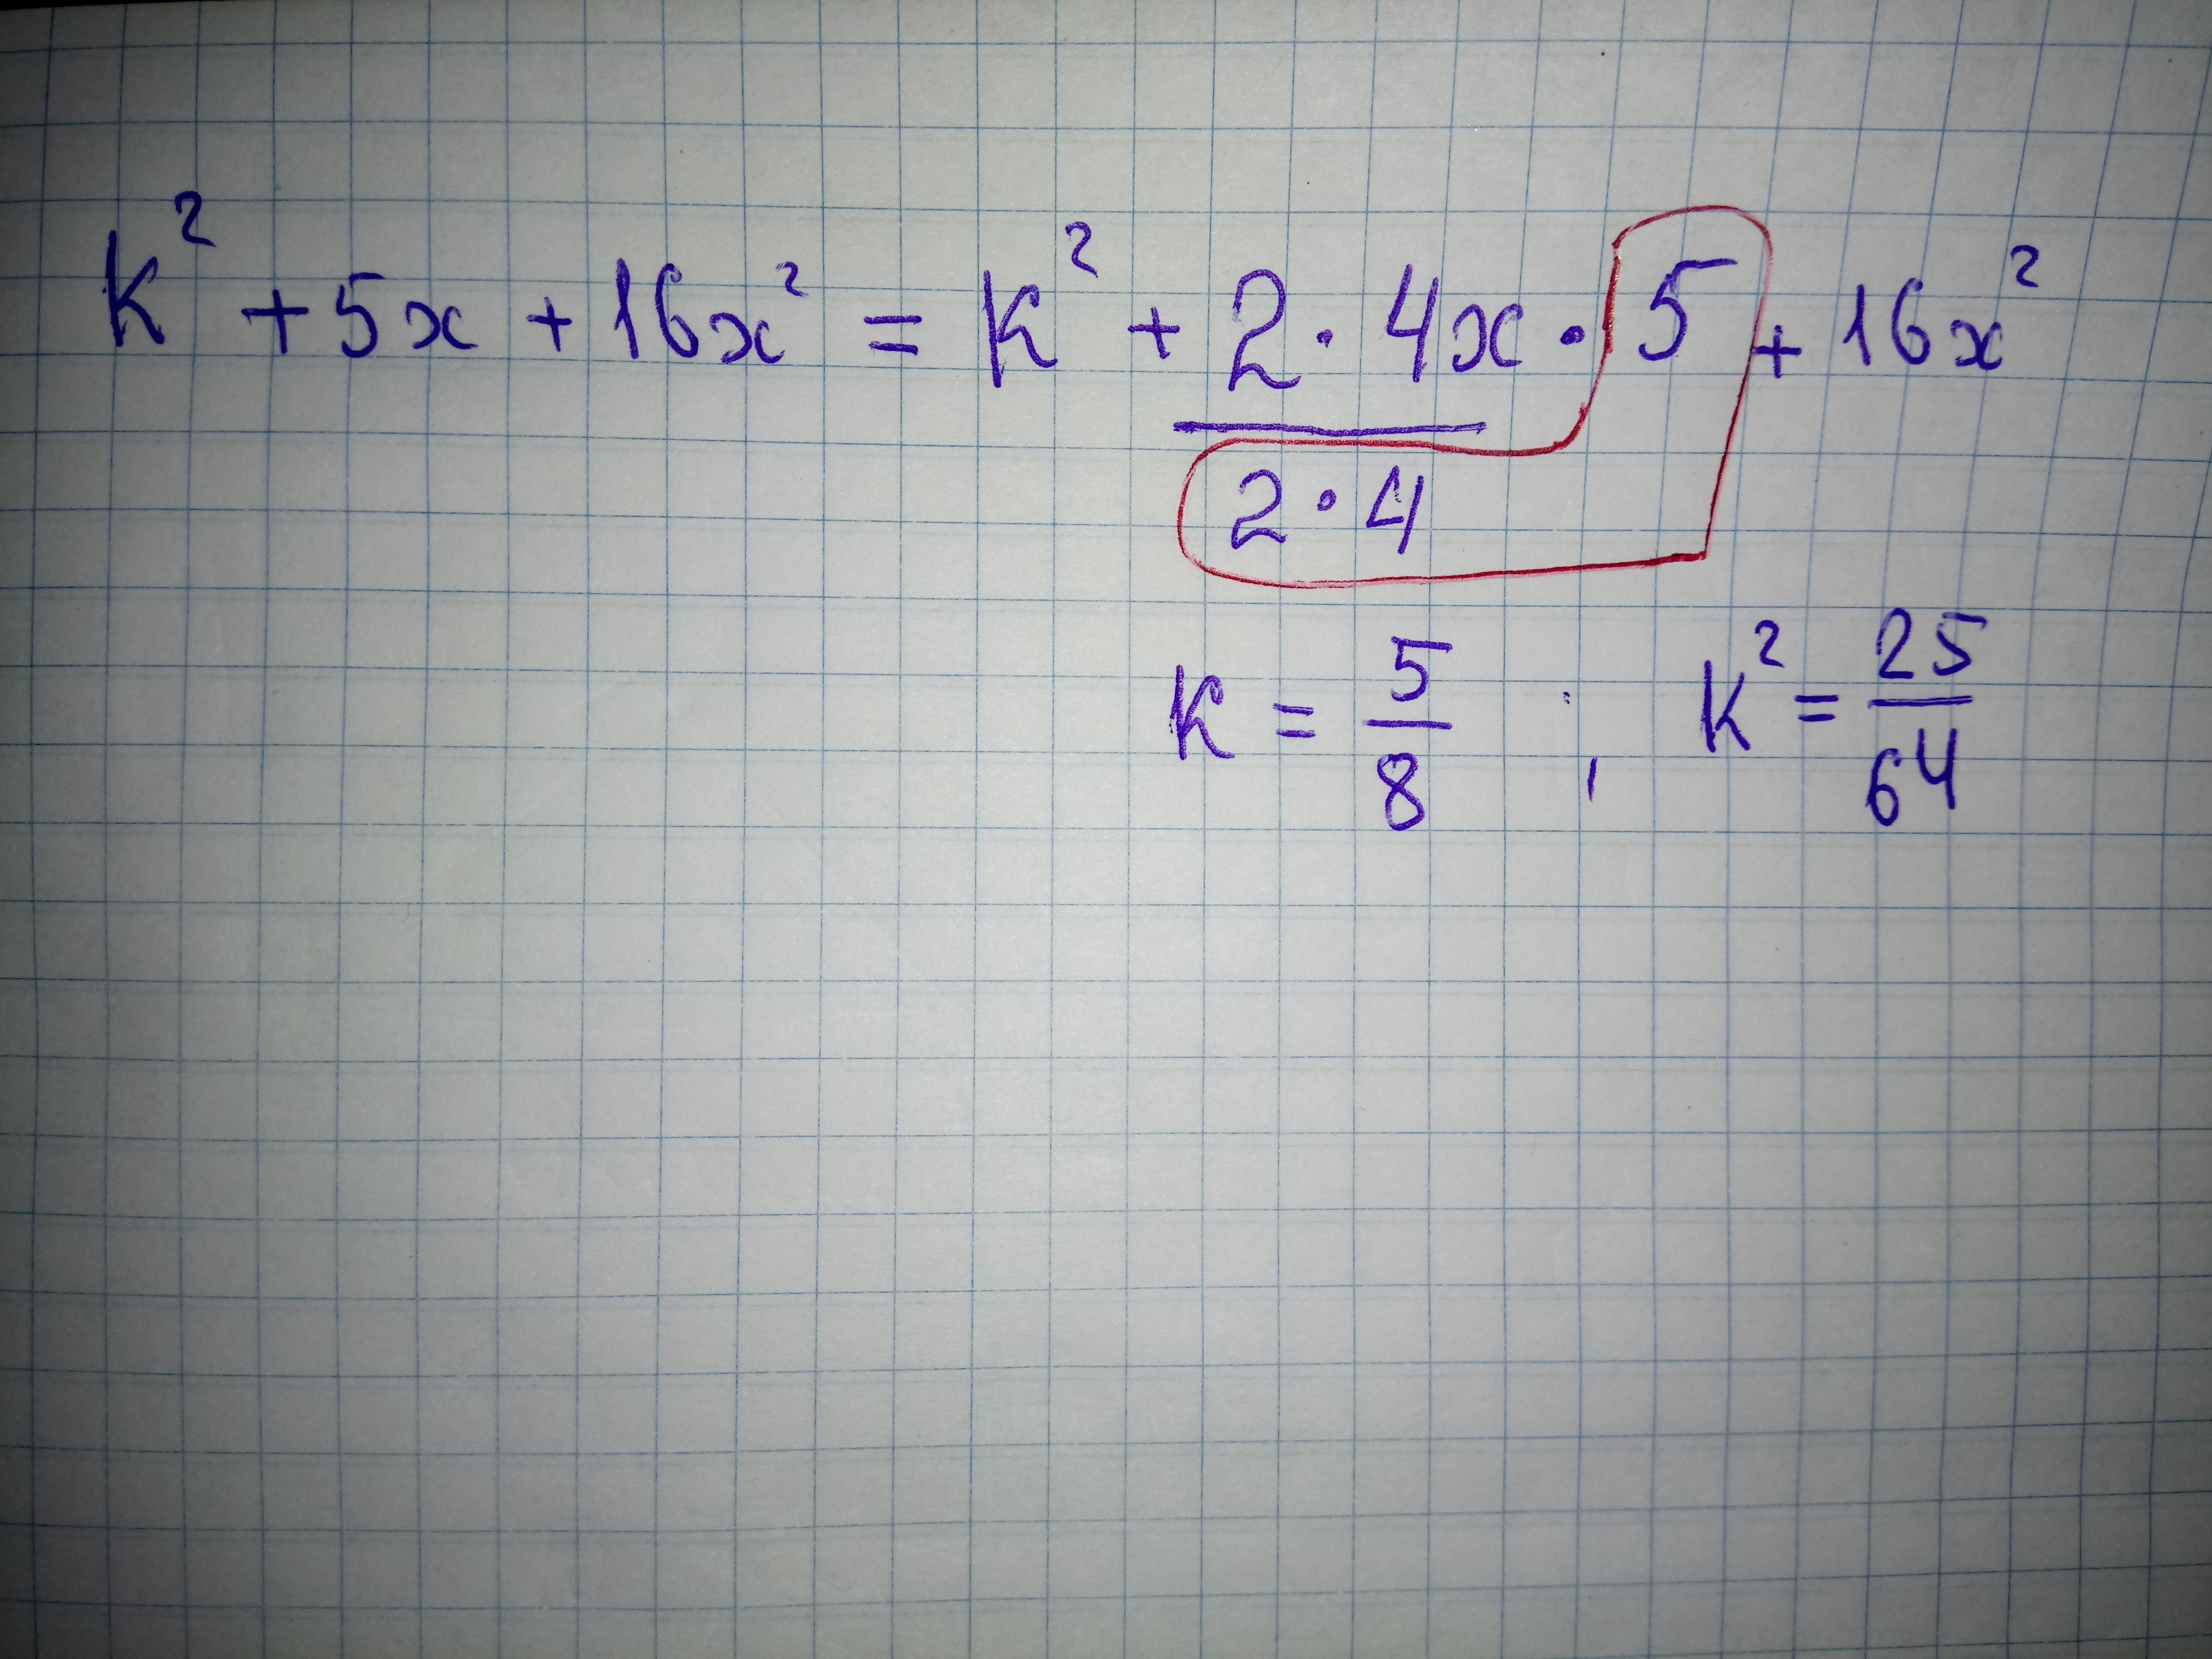 k² + 5x + 16x² = k² + 2 · 4x · 5 + 16x²
2 · 4
k = 5/8 ; k² = 25/64